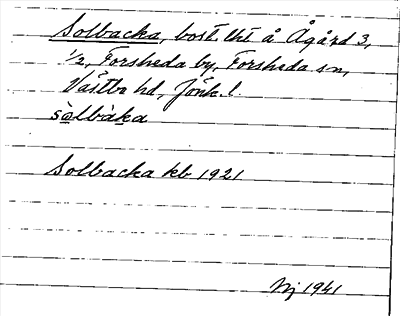 Solbacka, bost.lht å Ågård 3,
1/2, Forsheda by, Forsheda sn,
Västbo hd, Jönk. l.
sòlbàka
Solbacka kb 1921
Nj 1941